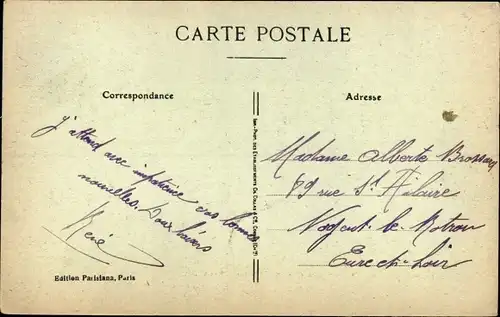 CARTE POSTALE
Correspondance
J'attend avec impatience vos bonnes
nouvelles. Doux baisers
René
Edition Parisiana, Paris
Adresse
Madame Alberte Brossard
89 rue St Hilaire
Nogent-le-Rotrou
Eure-et-Loir